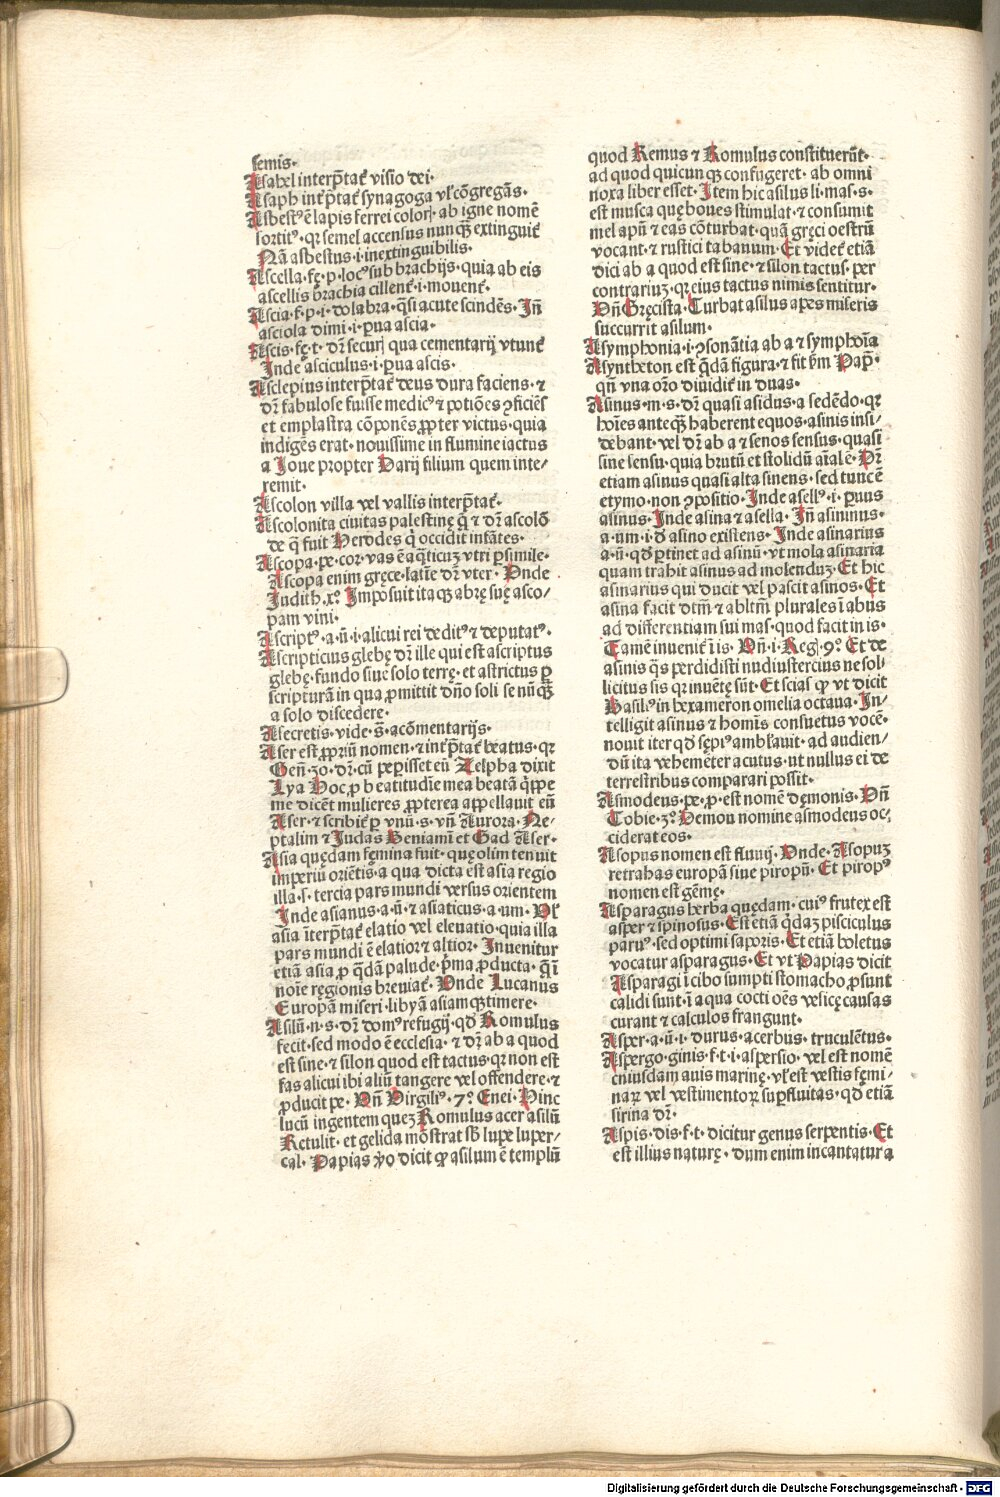 semis·
Asabel interp̄tat᷑ visio dei·
Asaph int᷑p̄tat᷑ synagoga vl᷑ cōgregās·
Asbest᷒ ē lapis ferrei colorꝭ· ab igne nomē
sortit᷒· qꝛ semel accensus nunqꝫ extinguit᷑
Nā asbestus·i·inextinguibilis·
Ascella·fę·p·loc᷒ sub brachijs·quia ab eis
ascellis brachia cillent᷑·i·mouent᷑·
Ascia·f·p·i·dolabra·q̄si acute scindēs· In̄
asciola dimi·i·ꝑua ascia·
Ascis·fę·t· dr̄ securꝭ qua cementarij vtunt᷑
Inde asciculus·i·ꝑua ascis·
Asclepius interp̄tat᷑ deus dura faciens·⁊
dr̄ fabulose fuisse medic᷒ ⁊ potiōes ꝯficiēs
et emplastra cōponēs ꝓpter victus·quia
indigēs erat·nouissime in flumine iactus
a Ioue propter Darij filium quem inte/
remit·
Ascolon villa vel vallis interp̄tat᷑·
Ascolonita ciuitas palestinę q̄ ⁊ dr̄ ascolō
de q̄ fuit Herodes q̇ occidit infātes·
Ascopa·pe·cor·vas ē aq̄ticuꝫ vtri ꝑsimile·
Ascopa enim gręce·latīe dr̄ vter· Vnde
Iudith·x?· Imposuit itaqꝫ abrę suę asco/
pam vini·
Ascript᷒·a·ū·i·alicui rei dedit᷒ ⁊ deputat᷒·
Ascripticius glebę dr̄ ille qui est ascriptus
glebę·fundo siue solo terrę·et astrictus ꝑ
scripturā in qua ꝓmittit dn̄o soli se nūqꝫ
a solo discedere·
Asecretis·vide·s̄·acōmentarijs·
Aser est ꝓpriū nomen·⁊ int᷑p̄tat᷑ beatus·qꝛ
Gen̄·30·dr̄·cū peꝑisset eū Zelpha dixit
Lya Hoc ꝓ beatitudīe mea beatā q̇ppe
me dicēt mulieres ꝓpterea appellauit eū
Aser·⁊ scribit᷑ ꝑ vnū·s·vn̄ Aurora· Ne/
ptalim ⁊ Iudas Beniamī et Gad Aser·
Asia quędam fęmina fuit·quę olim tenuit
imperiū oriētis·a qua dicta est asia regio
illa·s·tercia pars mundi versus orientem
Inde asianus·a·ū·⁊ asiaticus·a·um· Vl᷑
asia īterp̄tat᷑ elatio vel eleuatio·quia illa
pars mundi ē elatior ⁊ altior· Inuenitur
etiā asia ꝓ q̄dā palude·p̄ma ꝓducta·q̄ī
noīe regionis breuiat᷑· Vnde Lucanus
Europām miseri·libyā asiamqꝫ timere·
Asilū·n·s·dr̄ dom᷒ refugij·qd̄ Romulus
fecit·sed modo ē ecclesia·⁊ dr̄ ab a quod
est sine·⁊ silon quod est tactus·qꝛ non est
fas alicui ibi aliū tangere vel offendere·⁊
ꝓducit pe· Vn̄ Virgili᷒·7?· Enei· Hinc
lucū ingentem queꝫ Romulus acer asilū
Retulit·et gelida mōstrat sb̄ lupe luper/
cal· Papias v̇o dicit ꝙ asilum ē templū
quod Remus ⁊ Romulus constituerūt·
ad quod quicunqꝫ confugeret·ab omni
noxa liber esset· Item hic asilus li·mas·s·
est musca quę boues stimulat·⁊ consumit
mel apū ⁊ eas cōturbat·quā gręci oestrū
vocant·⁊ rustici tabanum· Et videt᷑ etiā
dici ab a quod est sine·⁊ silon tactus·per
contrariuꝫ·qꝛ eius tactus nimis sentitur·
Vn̄ Gręcista· Turbat asilus apes miseris
succurrit asilum·
Asymphonia·i·ꝯsonātia ab a ⁊ symphoīa
Asyntheton est q̄dā figura·⁊ fit ẜm Pap̄·
qn̄ vna or̄o diuidit᷑ in duas·
Asinus·m·s·dr̄ quasi asidus·a sedēdo·qꝛ
hoīes anteqꝫ haberent equos·asinis insi/
debant·vel dr̄ ab a ⁊ senos sensus·quasi
sine sensu·quia brutū et stolidū aīal ē· Dr̄
etiam asinus quasi alta sinens·sed tunc ē
etymo·non ꝯpositio· Inde asell᷒·i·ꝑuus
asinus· Inde asina ⁊ asella· In̄ asininus·
a·um·i·d̄ asino existens· Inde asinarius
a·ū·qd̄ ꝑtinet ad asinū·vt mola asinaria
quam trahit asinus ad molenduꝫ· Et hic
asinarius qui ducit vel pascit asinos· Et
asina facit dtm̄ ⁊ abltm̄ plurales ī abus
ad differentiam sui mas·quod facit in is·
Tamē inuenit᷑ ī is· Vn̄·i· Regꝭ·9?· Et de
asinis q̄s perdidisti nudiustercius ne sol/
licitus sis qꝛ inuētę sūt· Et scias ꝙ vt dicit
Basili᷒ in hexameron omelia octaua· In/
telligit asinus ⁊ homīs consuetus vocē·
nouit iter qd̄ sępi᷒ amb̄lauit·ad audien/
dū ita vehemēter acutus·ut nullus ei de
terrestribus comparari possit·
Asmodeus·pe·p·est nomē dęmonis· Vn̄
Tobie·3?· Demon nomine asmodeus oc/
ciderat eos·
Asopus nomen est fluuij· Vnde· Asopuꝫ
retrahas europā siue piropū· Et pirop᷒
nomen est gēmę·
Asparagus herba quędam·cui᷒ frutex est
asper ⁊ spinosus· Est etiā q̇daꝫ pisciculus
paru᷒·sed optimi saporis· Et etiā boletus
vocatur asparagus· Et vt Papias dicit
Asparagi ī cibo sumpti stomacho ꝓsunt
calidi sunt·ī aqua cocti oēs vesicę causas
curant ⁊ calculos frangunt·
Asper·a·ū·i·durus·acerbus·truculētus·
Aspergo·ginis·f·t·i·aspersio·vel est nomē
cuiusdam auis marinę·vl᷑ est vestis fęmi/
naꝝ vel vestimentoꝝ suꝑfluitas·qd̄ etiā
sirina dr̄·
Aspis·dis·f·t·dicitur genus serpentis· Et
est illius naturę·dum enim incantatura
Digitalisierung gefördert durch die Deutsche Forschungsgemeinschaft - DFG